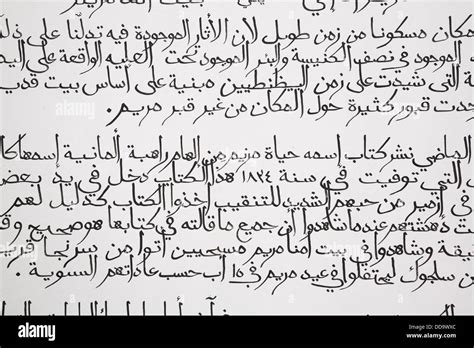 إزمير
مكان مسكونا من زمن طويل لأن الأثار الموجودة فيه تدلنا على ذلك
الموجود في نصف الكنيسة والبئر الموجود تحت العليه الواقعة على
ة التي شيدت على زمن البيظنطيين مبنية على أساس بيت قدي
جدت قبور كثيرة حول المكان من غير قبر مريم .
الماضي نشر كتاب إسمه حياة مريم من الهام راهبة ألمانية إسمها كا
التي توفيت في سنة ١٨٢٤ هذا الكتاب دخل في يد بعض
في أزمير من حبهم الشديد للتنقيب أخذوا الكتاب كدليل لهم
ت دهشتهم عندما شاهدوا أن جميع ما قالته في كتابها هو صحيح وق
يقة وشاهدوا في بيت أمنا مريم مسيحيين أتوا من سرنجا قر
سلجوك ليحتفلوا في عيد مريم في ١٥ اب حسب عاداتهم السنوية .
alamy
Image ID: DD9WXC
www.alamy.com